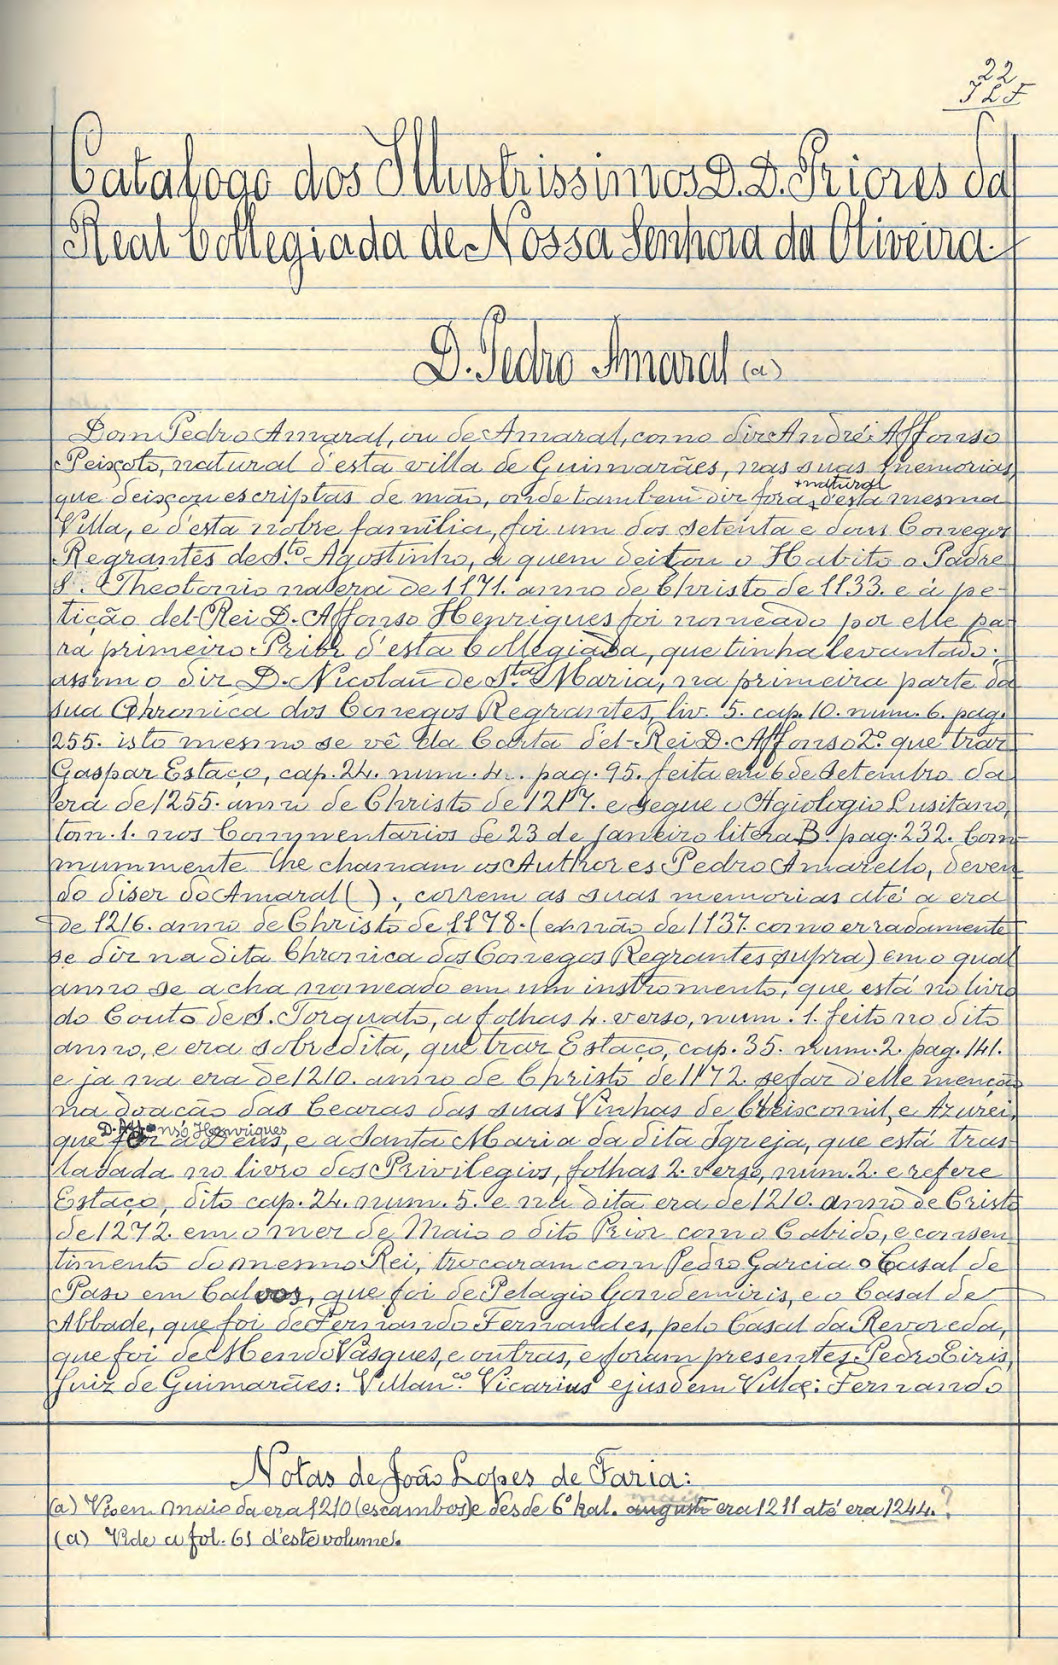 22
JLF
Catalogo dos Illustrissimos D. D. Priores da
Real Collegiada de Nossa Senhora da Oliveira.
D. Pedro Amaral (a)
Dom Pedro Amaral, ou de Amaral, como diz André Affonso
Peixoto, natural d'esta villa de Guimarães, nas suas memorias,
que deixou escriptas de mão, onde tambem diz fora, + natural d'esta mesma
Villa, e d'esta nobre familia, foi um dos setenta e dous Conegos
Regrantes de Sto. Agostinho, a quem deitou o Habito o Padre
S. Theotonio na era de 1171. anno de Christo de 1133. e á pe-
tição del-Rei D. Affonso Henriques foi nomeado por elle pa-
ra primeiro Prior d'esta Collegiada, que tinha levantado;
assim o diz D. Nicolau de Sta. Maria, na primeira parte da
sua Chronica dos Conegos Regrantes, liv. 5. cap. 10. num. 6. pag.
255. isto mesmo se vê da Carta del-Rei D. Affonso 2º. que traz
Gaspar Estaço, cap. 24. num. 4. pag. 95. feita em 6 de Setembro da
era de 1255. anno de Christo de 1217. e segue o Agiologio Lusitano,
tom. 1. nos Commentarios de 23 de Janeiro litera B. pag. 232. Com-
mummente lhe chamam os Authores Pedro Amarello, deven-
do diser do Amaral ( )., correm as suas memorias até a era
de 1216. anno de Christo de 1178. (e não de 1137. como erradamente
se diz na dita Chronica dos Conegos Regrantes supra) em o qual
anno se acha nomeado em um instromento, que está no livro
do Couto de S. Torquato, a folhas 4. verso, num. 1. feito no dito
anno, e era sobredita, que traz Estaço, cap. 35. num. 2. pag. 141.
e ja na era de 1210. anno de Christo de 1172. se faz d'elle menção
na doação das Cearas das suas Vinhas de Creixomil, e Azurei,
que fez D. Affonso Henriques a Deus, e a Santa Maria da dita Igreja, que está tras-
ladada no livro dos Privilegios, folhas 2. verso, num. 2. e refere
Estaço, dito cap. 24. num. 5. e na dita era de 1210. anno de Cristo
de 1272. em o mez de Maio o dito Prior com o Cabido, e consen-
timento do mesmo Rei, trocaram com Pedro Garcia o Casal de
Paso em Calvos, que foi de Pelagio Gondemiris, e o Casal de
Abbade, que foi de Fernando Fernandes, pelo Casal da Revoreda,
que foi de Mendo Vasques, e outras, e foram presentes: Pedro Eiris,
Juiz de Guimarães: Villanco. Vicarius ejusdem Villæ: Fernando
Notas de João Lopes de Faria:
(a) Vi-o em maio da era 1210 (escambos) e desde 6º kal. augusti maii era 1211 até era 1244. ?
(a) Vide a fol. 61 d'este volume.